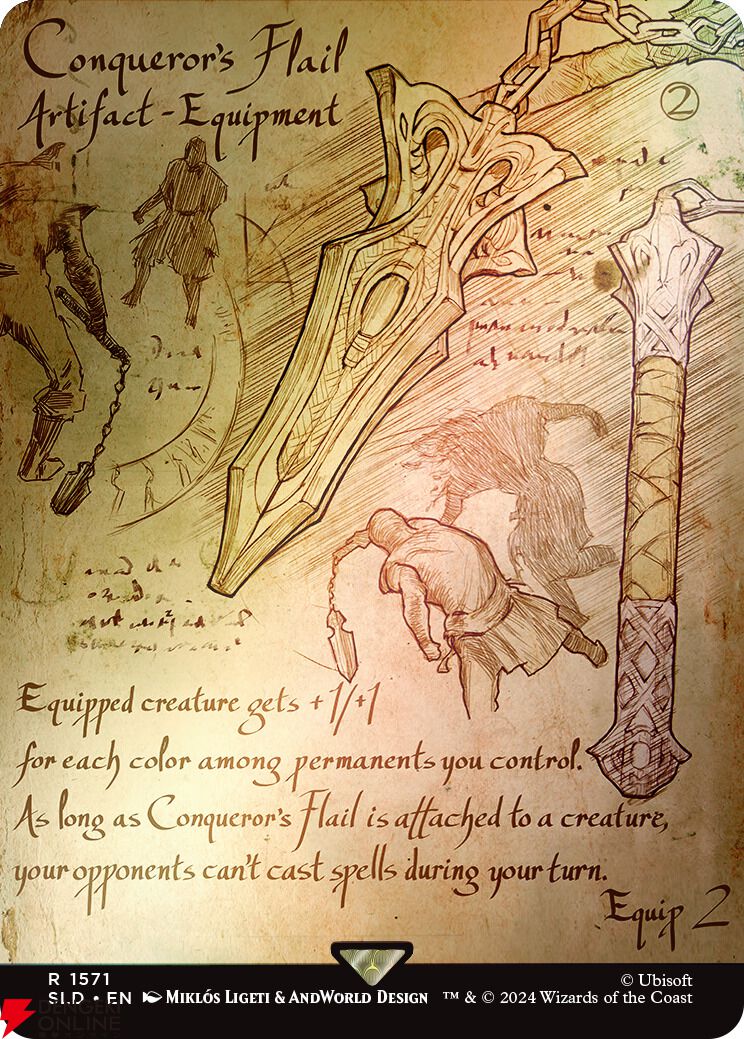 Conqueror's Flail
Artifact - Equipment
2
Equipped creature gets +1/+1
for each color among permanents you control.
As long as Conqueror's Flail is attached to a creature,
your opponents can't cast spells during your turn.
Equip 2
R 1571
SLD • EN Miklós Ligeti & AndWorld Design
© Ubisoft
™ & © 2024 Wizards of the Coast
DENGEKI
ONLINE